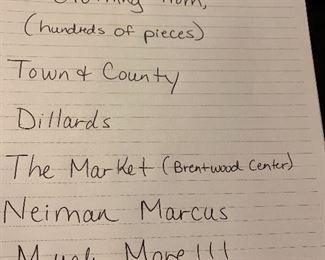 Clothing from,
(hundreds of pieces)
Town & County
Dillards
The Market (Brentwood Center)
Neiman Marcus
Much More!!!